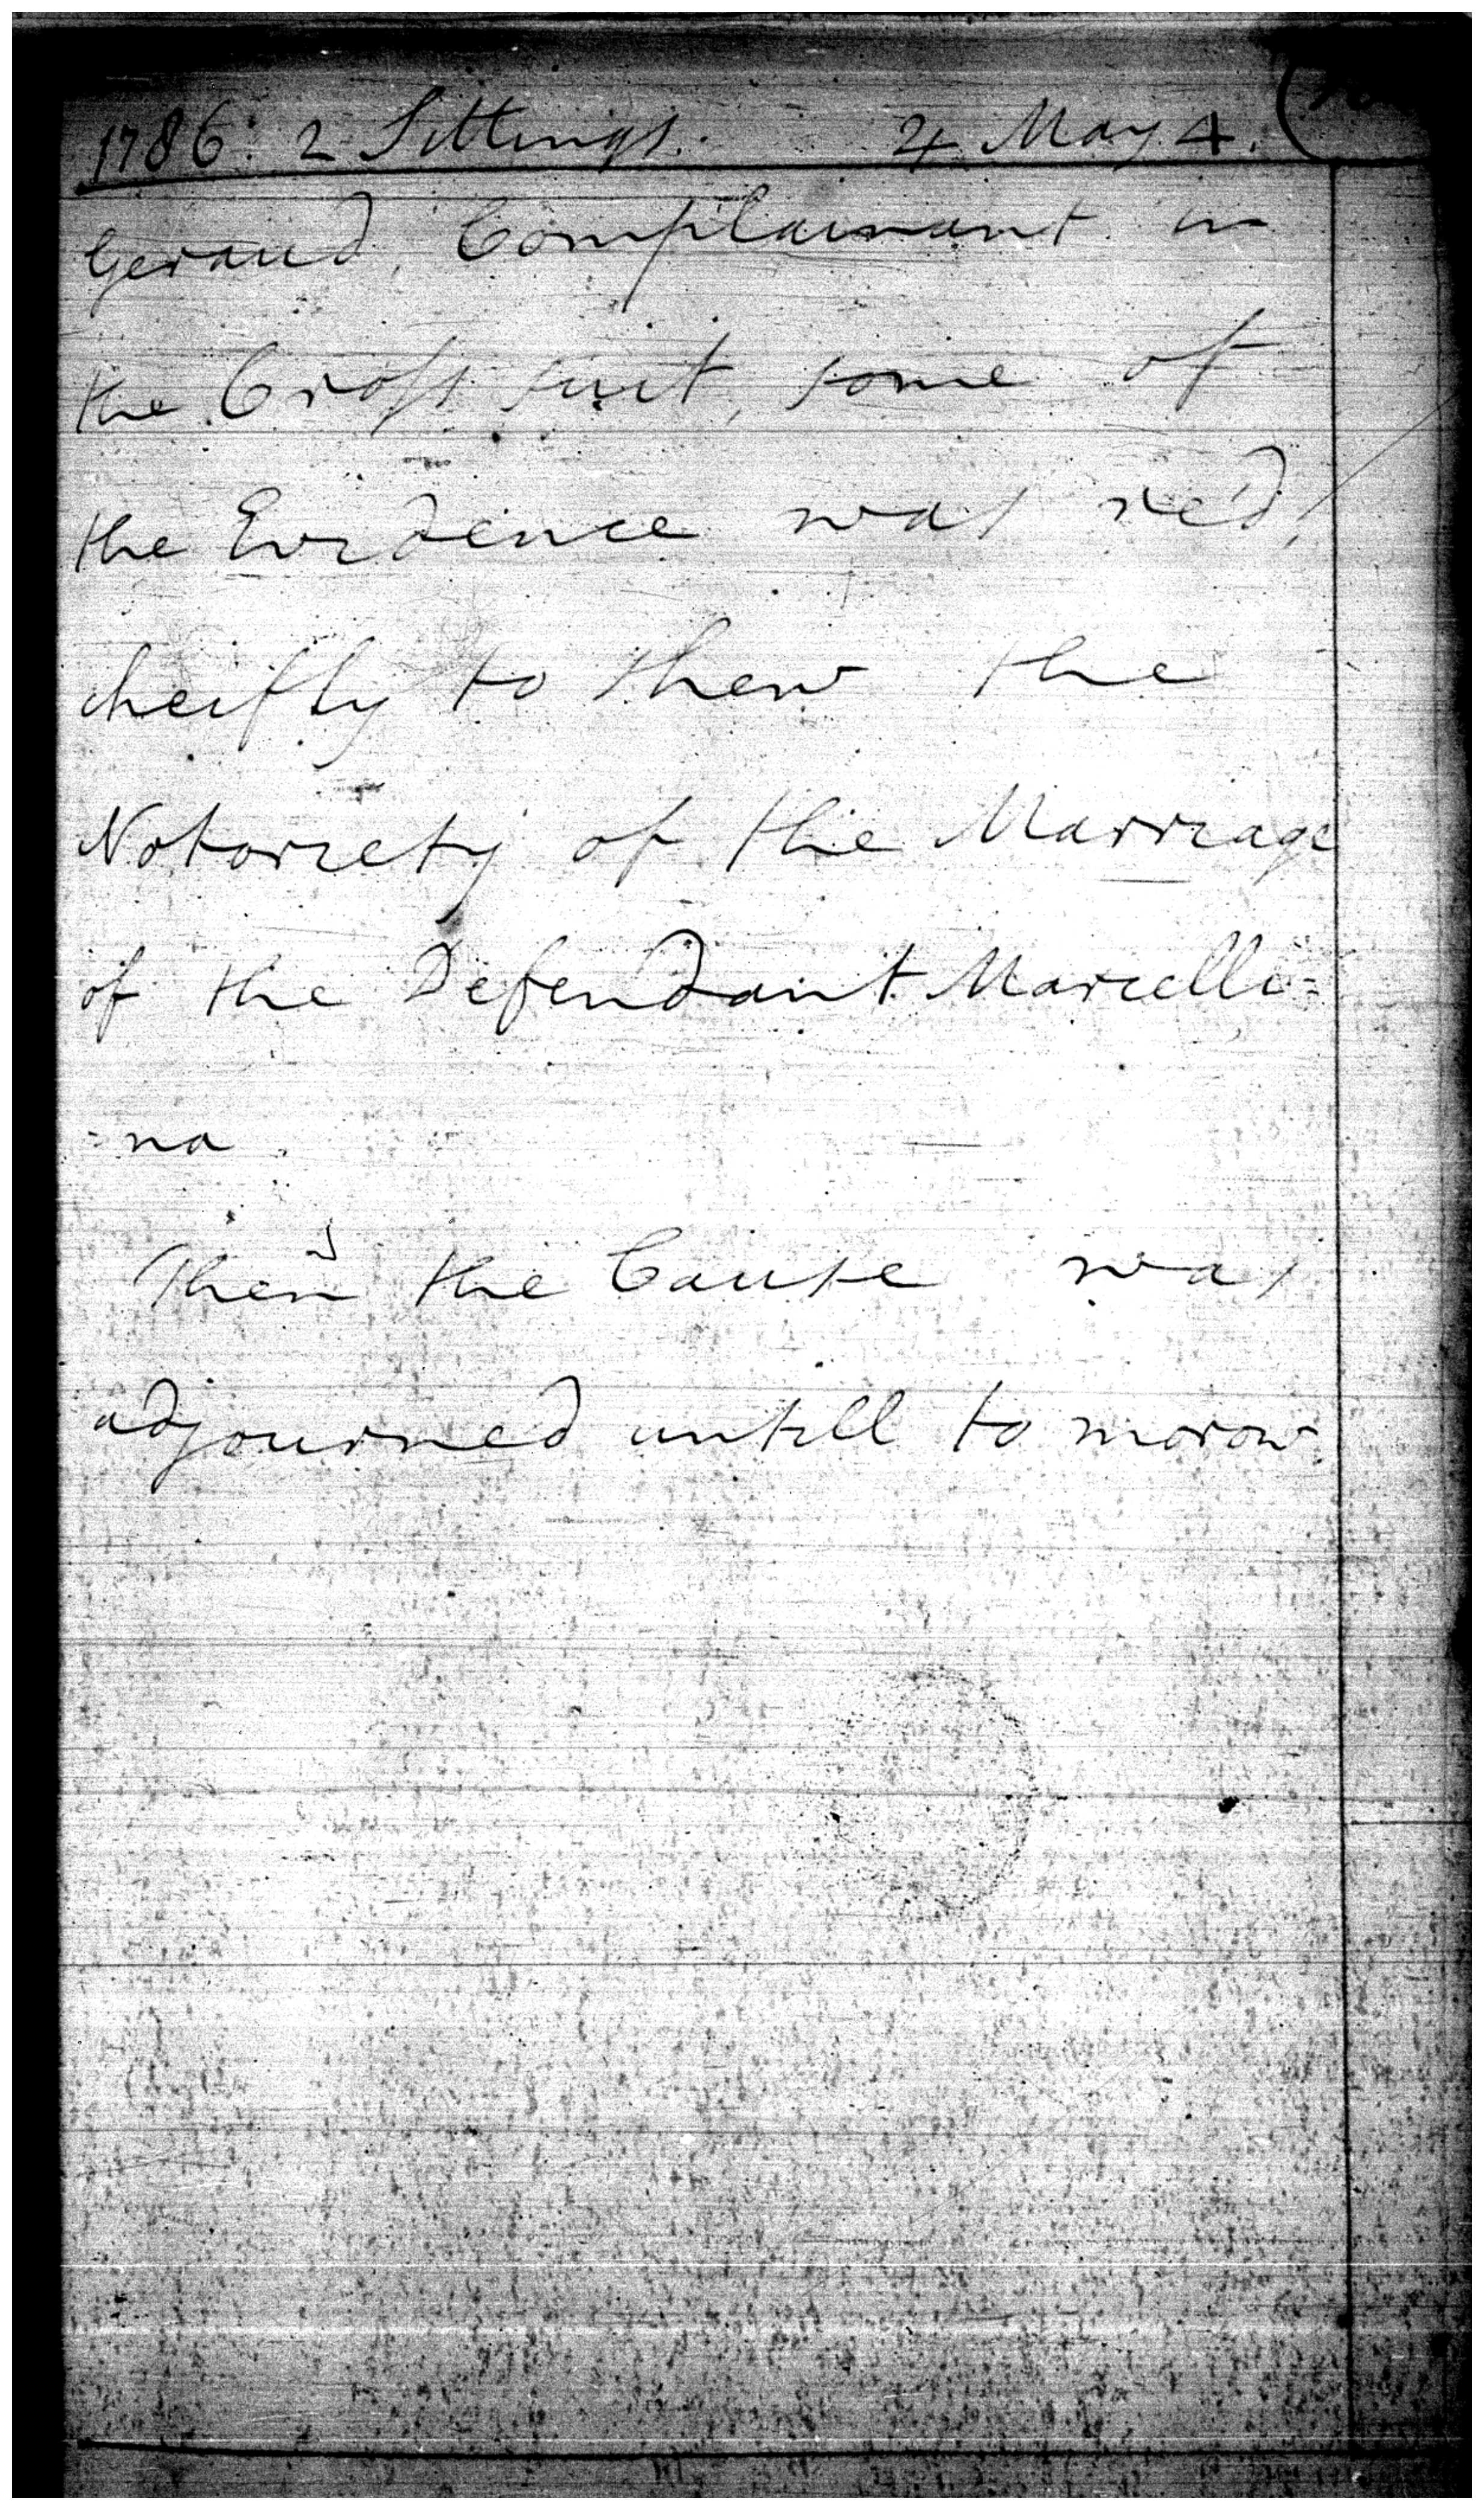 1786. 2 Sittings. 4 May 4.
Geraud, Complainant in
the Cross suit, some of
the Evidence was red,
cheifly to shew the
Notoriety of the Marriage
of the Defendant Marcelli=
=na.
Then the Cause was
adjourned untill to morow.